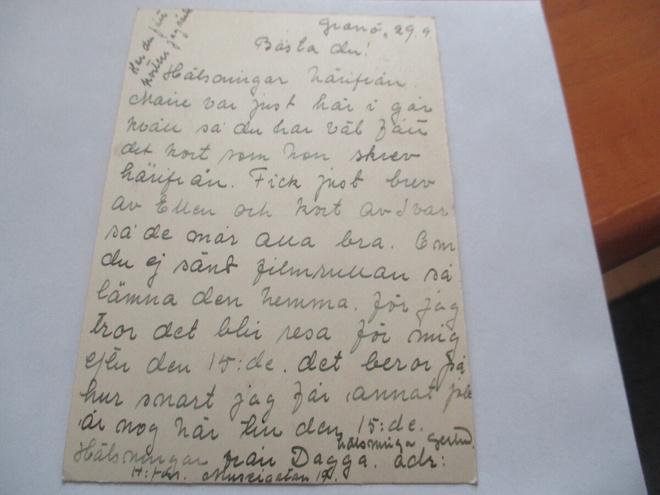 Har du fått
korten jag
Granö, 29.9
Bästa du!
Hälsningar härifrån.
Maire var just här i går
kväll så du har väl fått
det kort som hon skrev
härifrån. Fick just brev
av Ellen och kort av Ivar
så de mår alla bra. Om
du ej sänt filmrullan så
lämna den hemma. för jag
tror det blir resa för mig
efter den 15:de. det beror på
hur snart jag får annat job
är nog här till den 15:de.
hälsninga Gertrud.
Hälsningar från Dagga. adr:
H:fors. Museigatan